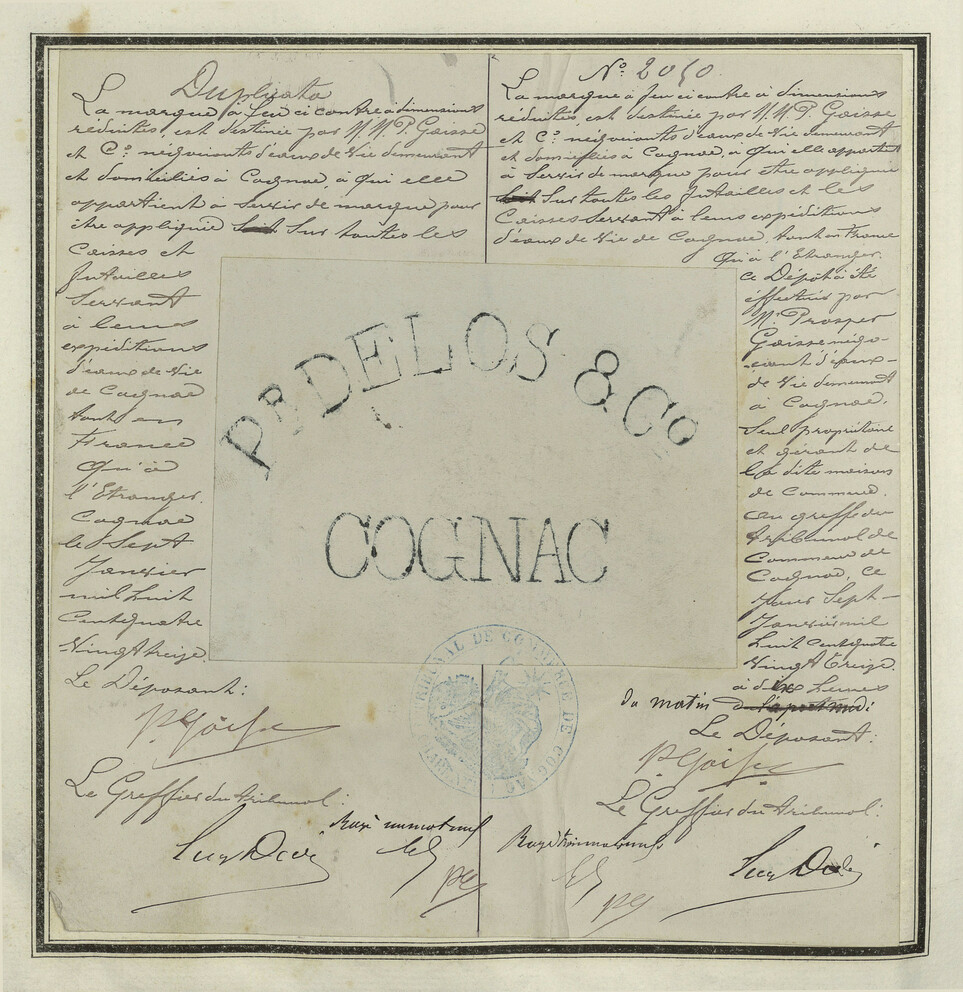 Duplicata
La marque à feu ci contre à dimensions
réduites, est destinée par M. M. P. Goisse
et Cº. négociants d'eaux de Vie demeurant
et domiciliés à Cognac, à Qui elle
appartient à Servir de marque pour
être appliquée Sur toutes les
Caisses et
futailles
Servant
à leurs
expéditions
d'eaux de Vie
de Cognac
tant en
France
Qu'à
l'Etranger.
Cognac
le Sept
Janvier
mil huit
Cent quatre
Vingt treize.
Le Déposant:
P. Goisse
Le Greffier du Tribunal:
Rayé un mot nul
Nº 2050
La marque à feu ci contre à dimensions
réduites, est destinée par M. M. P. Goisse
et Cº. négociants d'eaux de Vie demeurant
et domiciliés à Cognac, à Qui elle appartient
à Servir de marque pour être appliquée
Sur toutes les futailles et les
Caisses Servant à leurs expéditions
d'eaux de Vie de Cognac, tant en France
Qu'à l'Etranger.
Ce Dépôt à été
effectué par
Mr. Prosper
Goisse négo-
ciant d'eaux-
de Vie demeurant
à Cognac.
Seul propriétaire
et gérant de
la dite maison
de Commerce.
au greffe du
tribunal de
Commerce de
Cognac, Ce
Jour Sept-
Janvier mil
huit Cent quatre
Vingt treize.
à dix heures
du matin de l'après midi
Le Déposant:
P. Goisse
Le Greffier du tribunal:
Rayé trois mots nuls
PR DELOS & CO
COGNAC
TRIBUNAL DE COMMERCE DE COGNAC